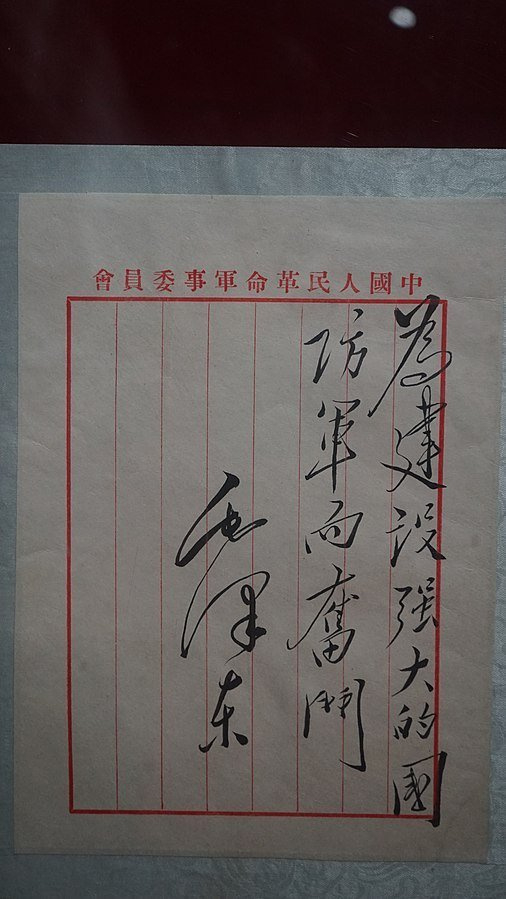 中國人民革命軍事委員會
為建设强大的國
防軍而奮鬥
毛澤东